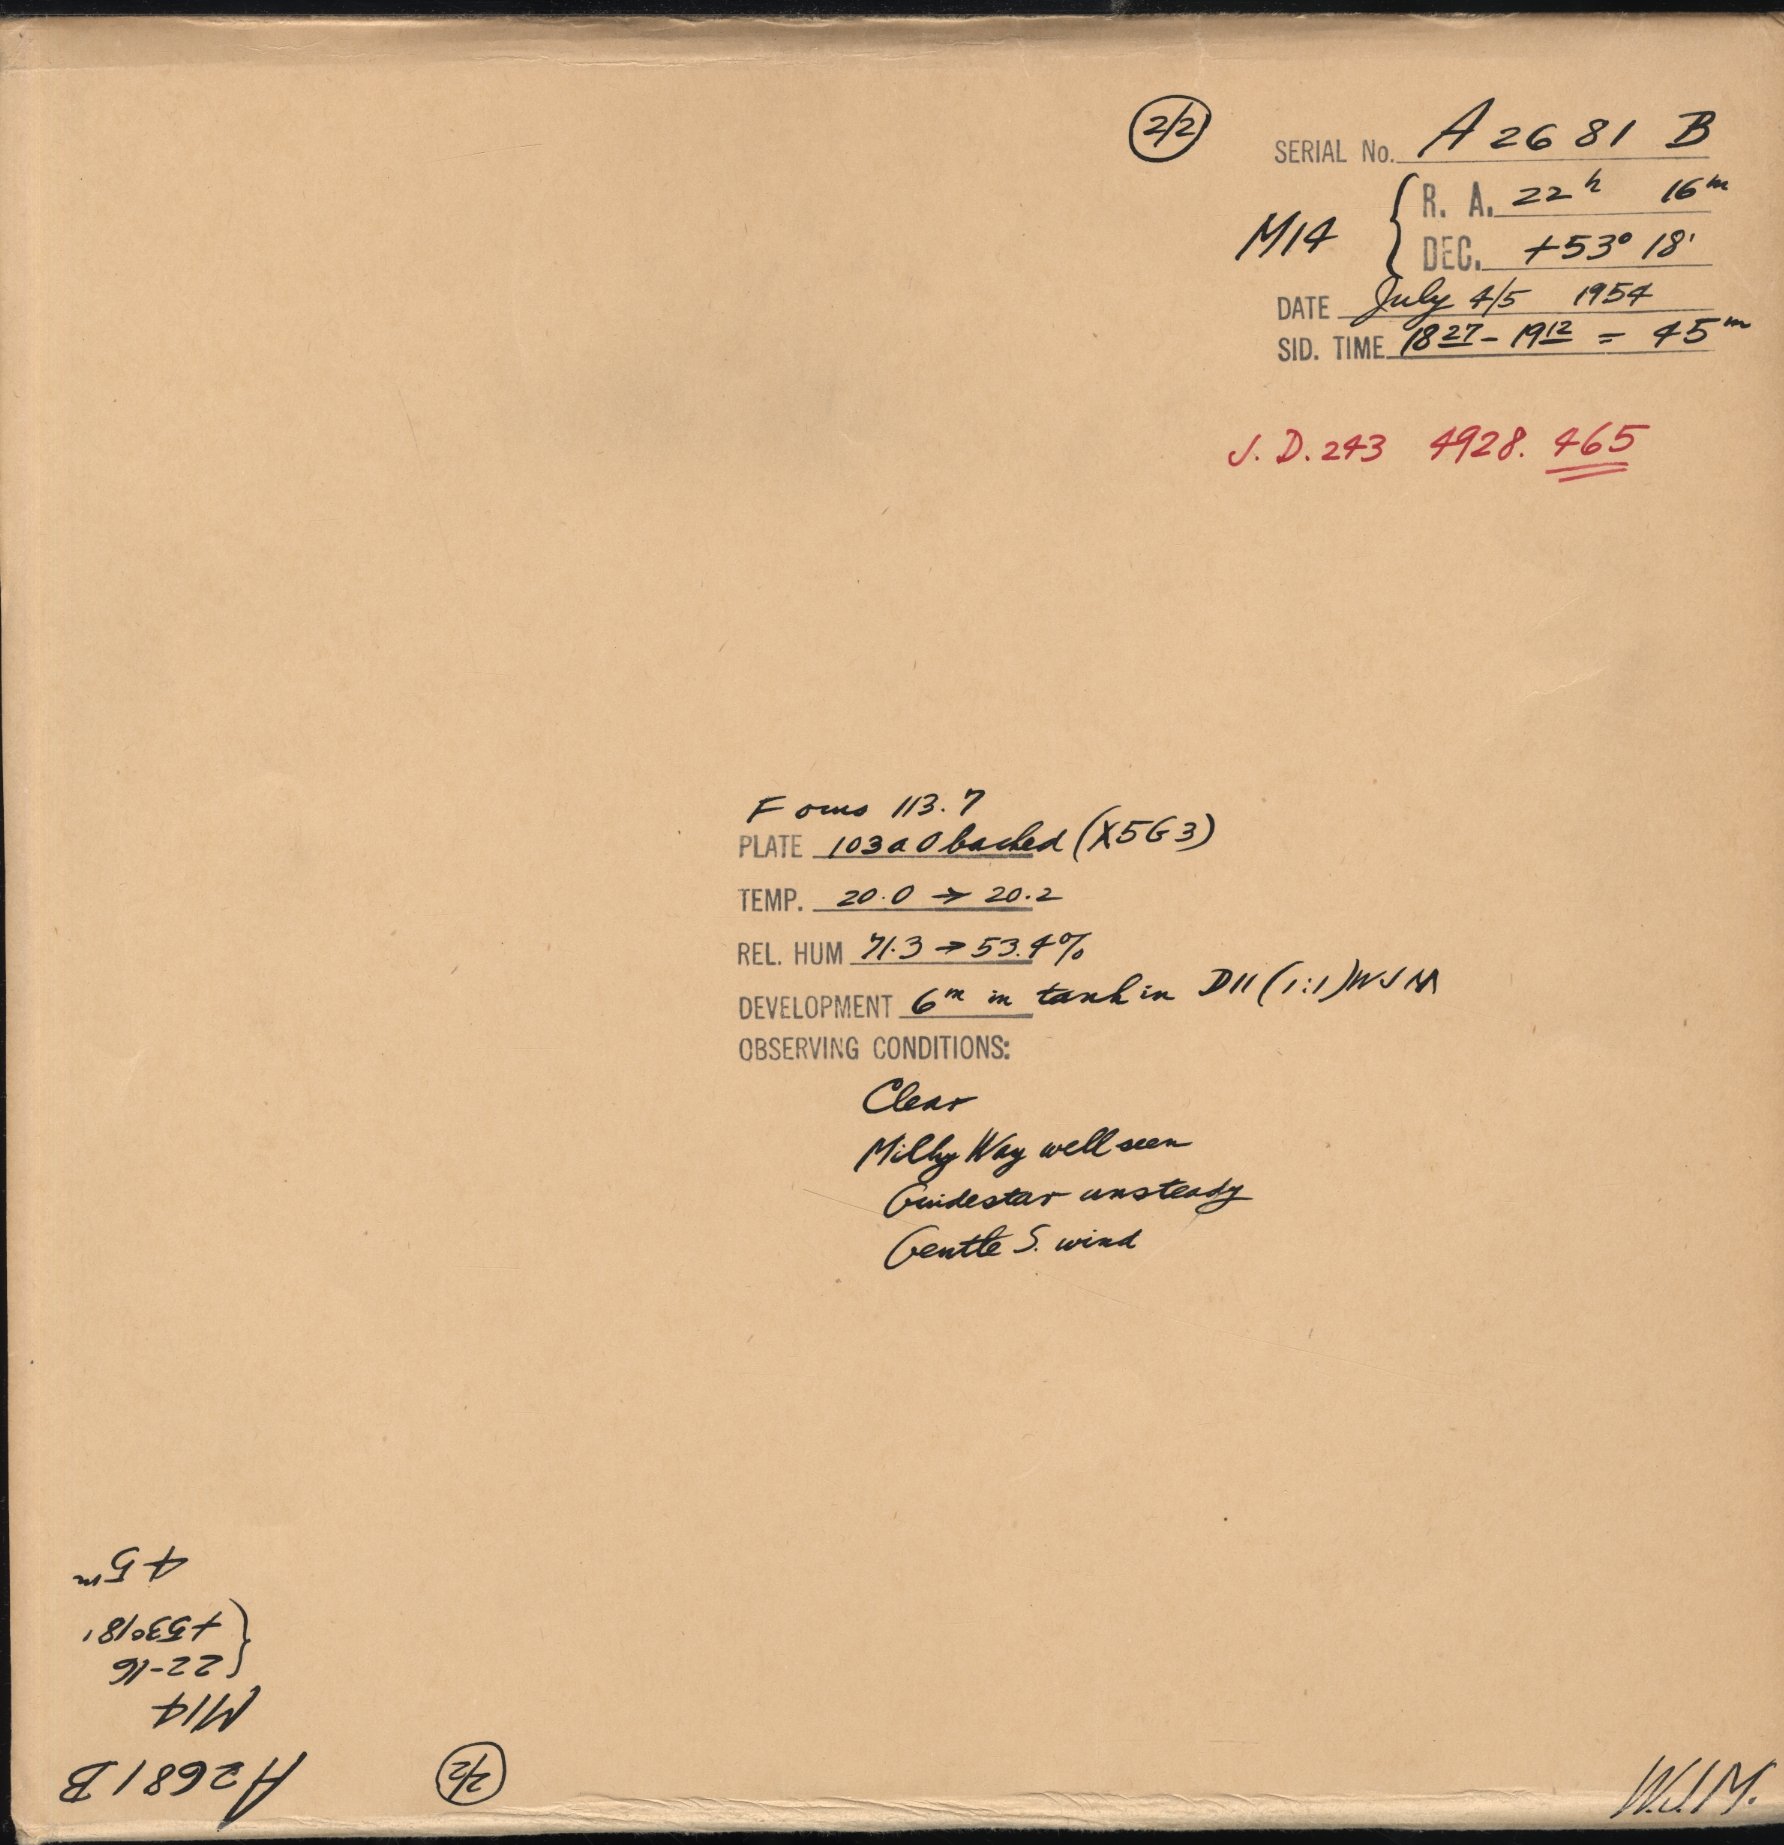 2/2
SERIAL No. A 2681 B
M14 { R. A. 22h 16m
DEC. +53° 18'
DATE July 4/5 1954
SID. TIME 18 27 - 19 12 = 45m
J. D. 243 4928. 465
Focus 113.7
PLATE 103a O backed (X5G3)
TEMP. 20.0 → 20.2
REL. HUM 71.3 → 53.4%
DEVELOPMENT 6m in tank in D11 (1:1) WJM
OBSERVING CONDITIONS:
Clear
Milky Way well seen
Guidestar unsteady
Gentle S. wind
2/2
A2681B
M14
{ 22-16
+53°18'
45m
W.J.M.